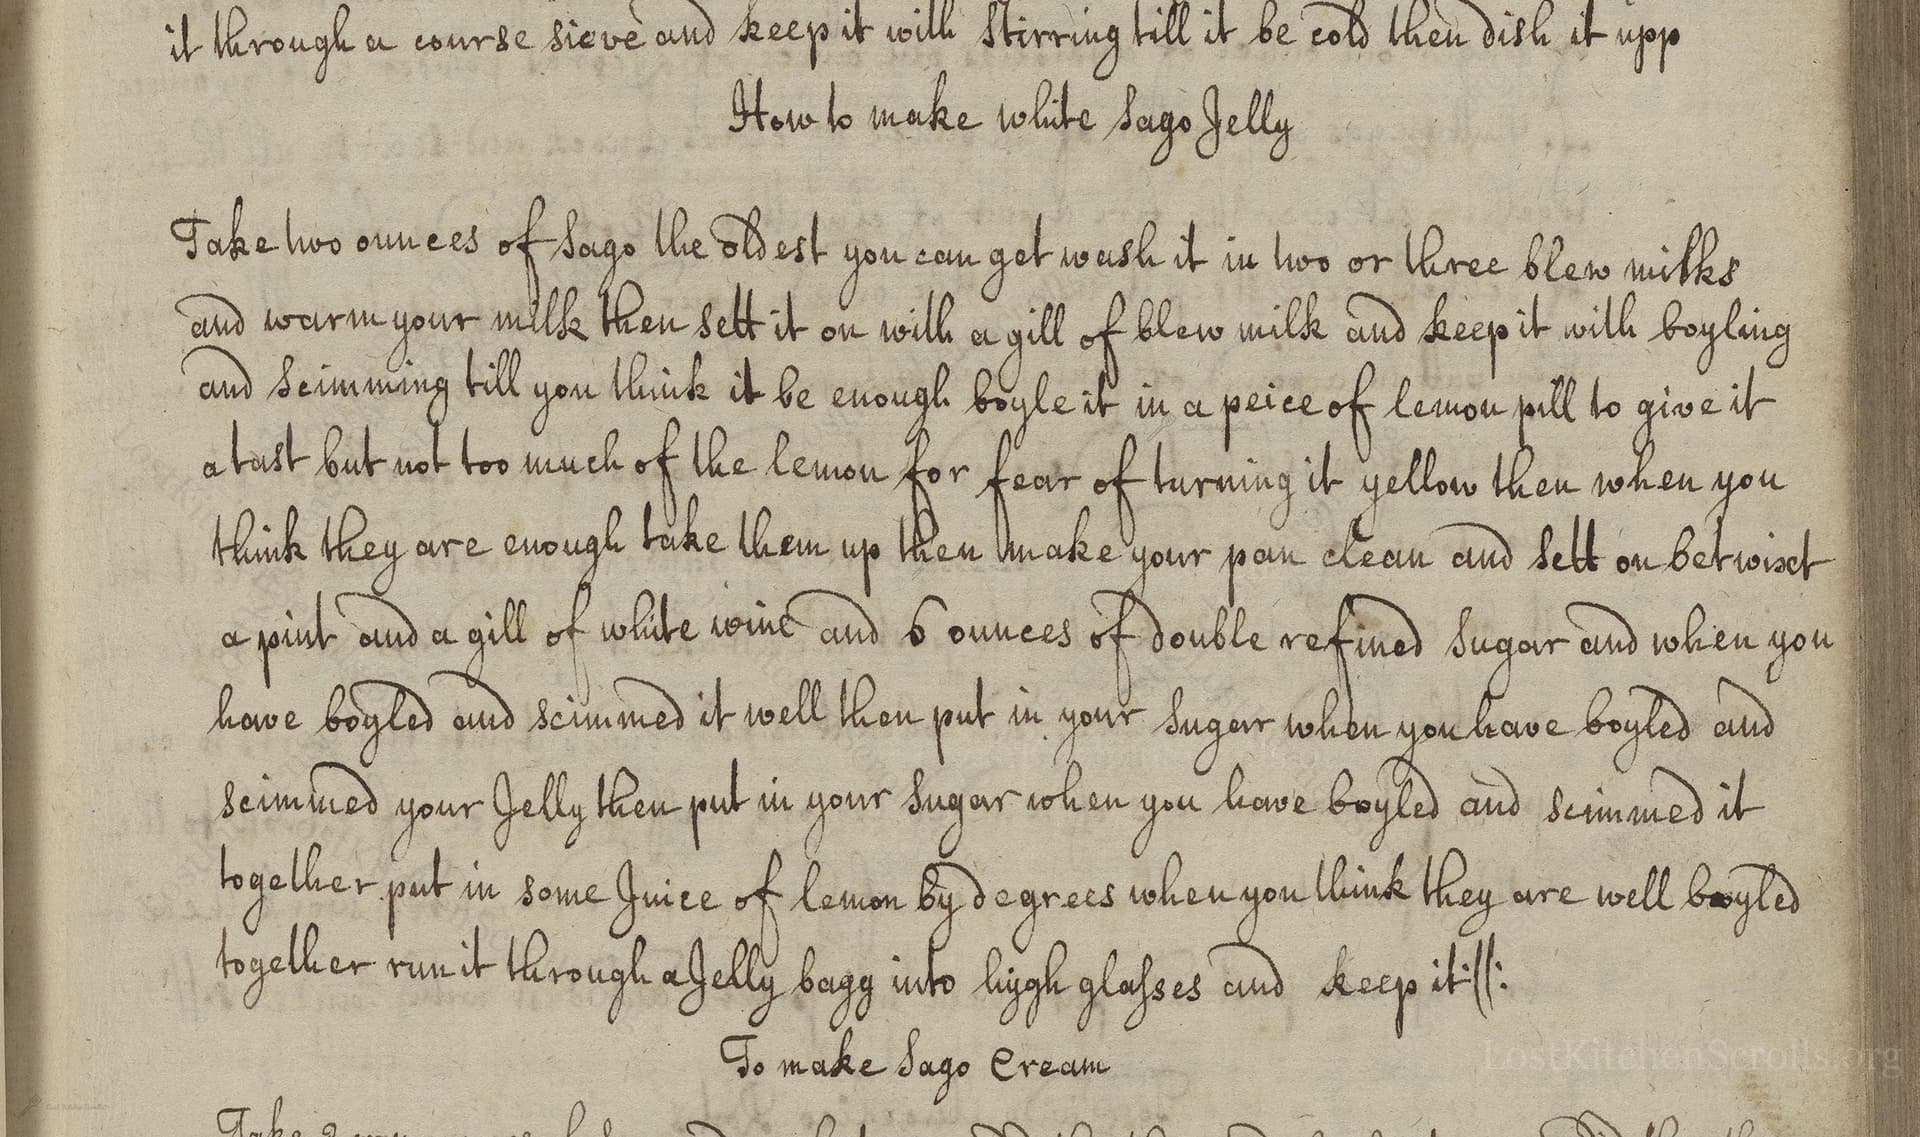 it through a course sieve and keep it with stirring till it be cold then dish it upp
How to make white Sago Jelly
Take two ounces of Sago the oldest you can get wash it in two or three blew milks
and warm your milk then sett it on with a gill of blew milk and keep it with boyling
and scimming till you think it be enough boyle it in a peice of lemon pill to give it
a tast but not too much of the lemon for fear of turning it yellow then when you
think they are enough take them up then make your pan clean and sett on betwixt
a pint and a gill of white wine and 6 ounces of double refined Sugar and when you
have boyled and scimmed it well then put in your Sugar when you have boyled and
scimmed your Jelly then put in your Sugar when you have boyled and scimmed it
together put in some Juice of lemon by degrees when you think they are well boyled
together run it through a Jelly bagg into hygh glasses and keep it://:
To make Sago Cream
LostKitchenScrolls.org
Take